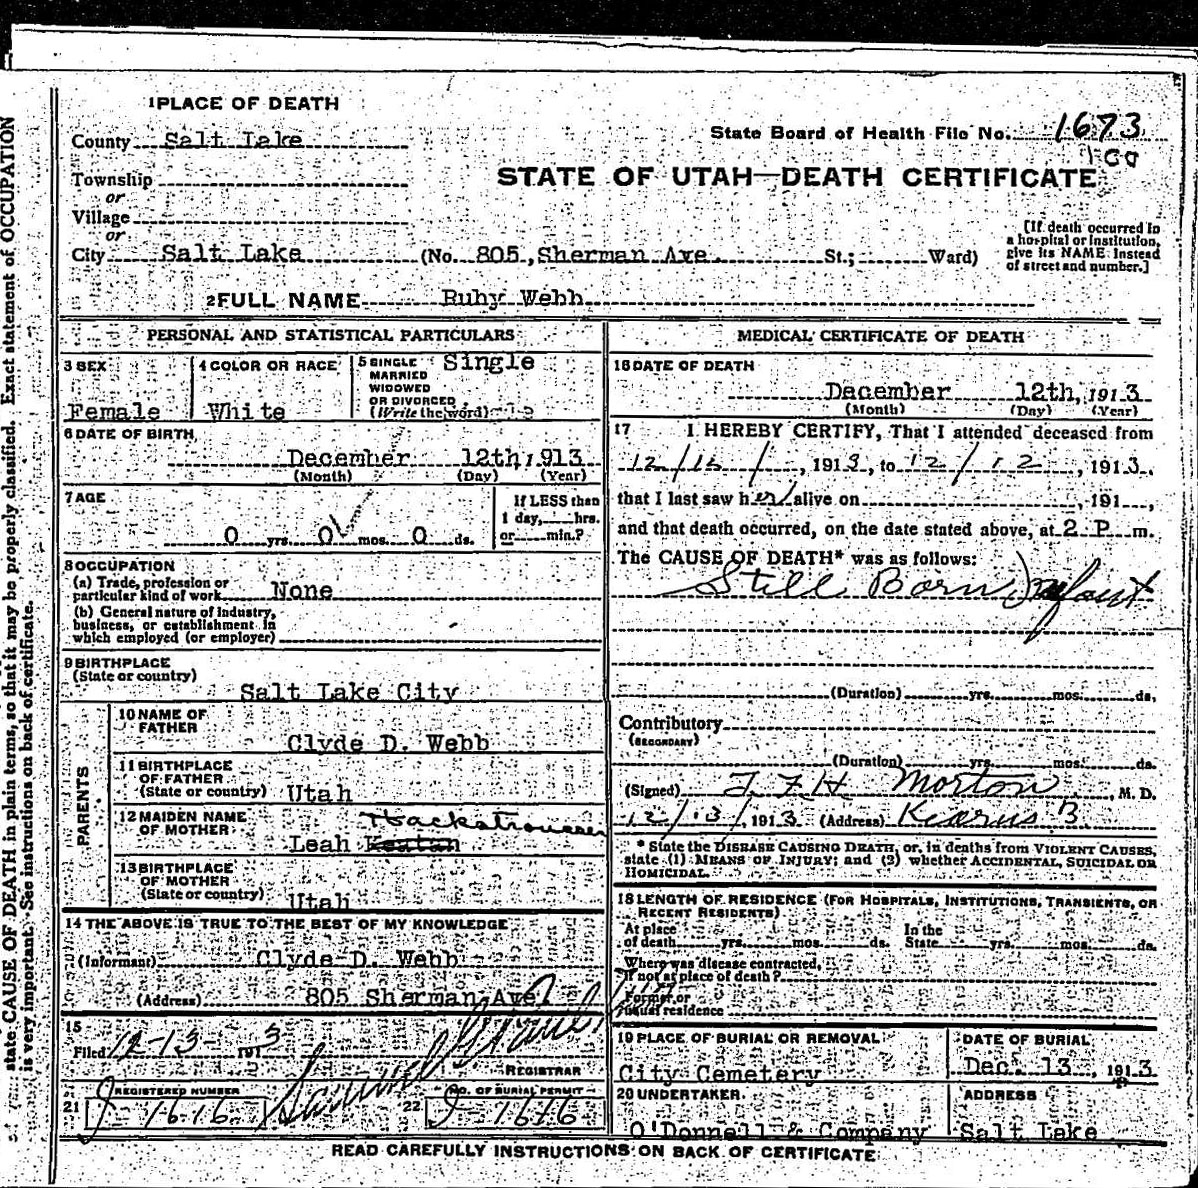 state CAUSE OF DEATH in plain terms, so that it may be properly classified. Exact statement of OCCUPATION
is very important. See instructions on back of certificate.
1 PLACE OF DEATH
County Salt Lake
State Board of Health File No. 1673
100
Township
or
Village
or
STATE OF UTAH—DEATH CERTIFICATE
City Salt Lake (No. 805, Sherman Ave. St.; Ward)
[If death occurred in
a hospital or institution,
give its NAME instead
of street and number.]
2 FULL NAME Ruby Webb
PERSONAL AND STATISTICAL PARTICULARS
3 SEX
Female
4 COLOR OR RACE
White
5 SINGLE
MARRIED
WIDOWED
OR DIVORCED
(Write the word)
Single
6 DATE OF BIRTH
December 12th, 913
(Month) (Day) (Year)
7 AGE
0 yrs. 0 mos. 0 ds.
If LESS than
1 day, hrs.
or min.?
8 OCCUPATION
(a) Trade, profession or
particular kind of work None
(b) General nature of industry,
business, or establishment in
which employed (or employer)
9 BIRTHPLACE
(State or country)
Salt Lake City
PARENTS
10 NAME OF
FATHER
Clyde D. Webb
11 BIRTHPLACE
OF FATHER
(State or country) Utah
12 MAIDEN NAME
OF MOTHER
Leah Keatan
13 BIRTHPLACE
OF MOTHER
(State or country) Utah
14 THE ABOVE IS TRUE TO THE BEST OF MY KNOWLEDGE
(Informant) Clyde D. Webb
(Address) 805 Sherman Ave
15
Filed 12-13- 1913
REGISTRAR
REGISTERED NUMBER
21 J-1616
NO. OF BURIAL PERMIT
22 J-1616
MEDICAL CERTIFICATE OF DEATH
16 DATE OF DEATH
December 12th, 1913
(Month) (Day) (Year)
17 I HEREBY CERTIFY, That I attended deceased from
12/12/, 1913, to 12/12, 1913,
that I last saw her alive on , 191 ,
and that death occurred, on the date stated above, at 2 P m.
The CAUSE OF DEATH* was as follows:
Still Born Infant
(Duration) yrs. mos. ds.
Contributory
(SECONDARY)
(Duration) yrs. mos. ds.
(Signed) F F H Morton, M. D.
12/13/, 1913 (Address) Kearns B.
* State the DISEASE CAUSING DEATH, or, in deaths from VIOLENT CAUSES,
state (1) MEANS OF INJURY; and (2) whether ACCIDENTAL, SUICIDAL OR
HOMICIDAL.
18 LENGTH OF RESIDENCE (FOR HOSPITALS, INSTITUTIONS, TRANSIENTS, OR
RECENT RESIDENTS)
At place
of death yrs. mos. ds.
In the
State yrs. mos. ds.
Where was disease contracted,
If not at place of death?
Former or
usual residence
19 PLACE OF BURIAL OR REMOVAL
City Cemetery
DATE OF BURIAL
Dec. 13, 1913
20 UNDERTAKER
O'Donnell & Company
ADDRESS
Salt Lake
READ CAREFULLY INSTRUCTIONS ON BACK OF CERTIFICATE